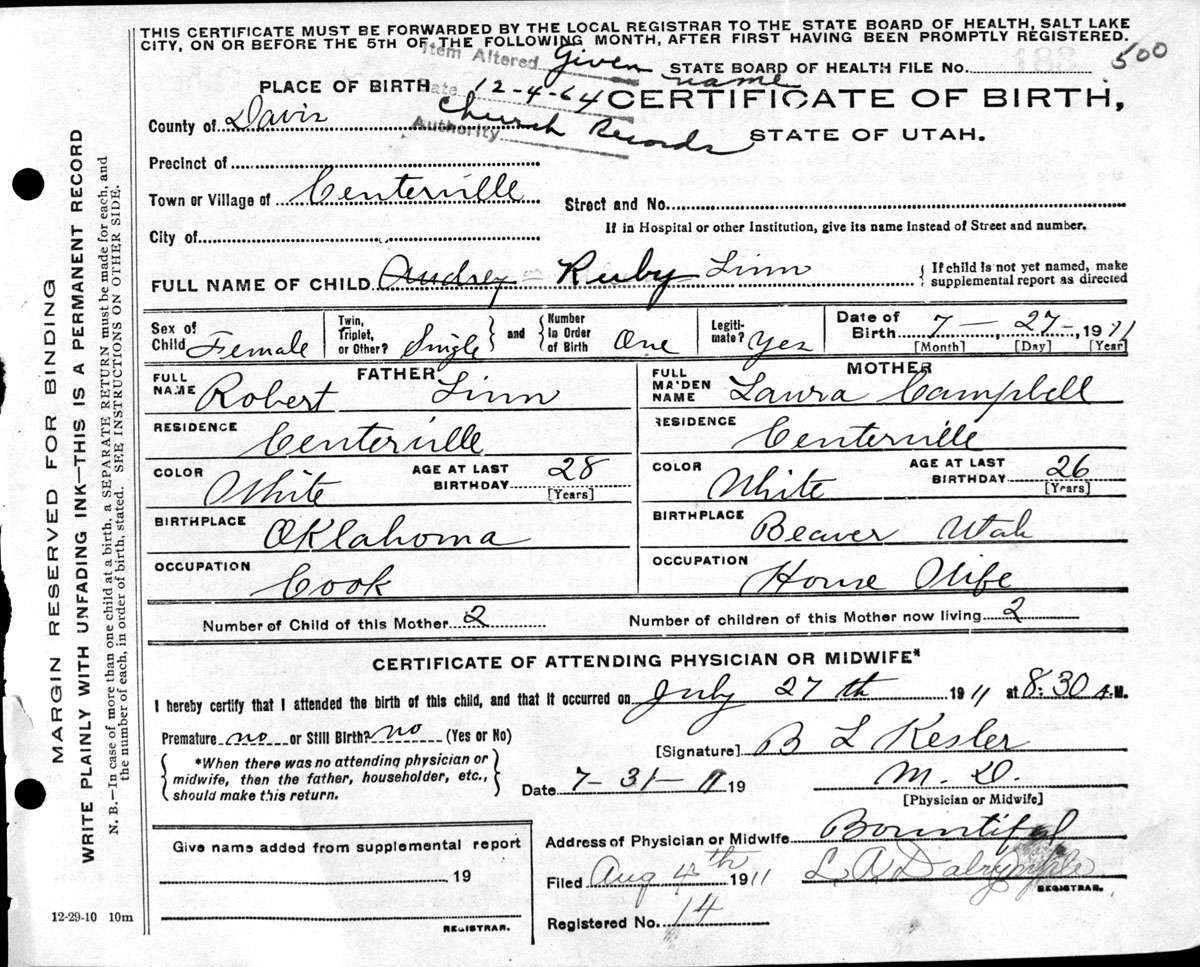 THIS CERTIFICATE MUST BE FORWARDED BY THE LOCAL REGISTRAR TO THE STATE BOARD OF HEALTH, SALT LAKE
CITY, ON OR BEFORE THE 5TH OF THE FOLLOWING MONTH, AFTER FIRST HAVING BEEN PROMPTLY REGISTERED.
Item Altered Given name STATE BOARD OF HEALTH FILE No. 500
PLACE OF BIRTH Date 12-4-64 CERTIFICATE OF BIRTH,
County of Davis Authority Church Records STATE OF UTAH.
Precinct of
Town or Village of Centerville Street and No.
City of If in Hospital or other Institution, give its name instead of Street and number.
FULL NAME OF CHILD Audrey Ruby Linn { If child is not yet named, make
supplemental report as directed
Sex of Child Female Twin, Triplet, or Other? Single and Number In Order of Birth One Legiti- mate? Yes Date of Birth 7 - 27 - 1911
[Month] [Day] [Year]
FATHER MOTHER
FULL NAME Robert Linn FULL MAIDEN NAME Laura Campbell
RESIDENCE Centerville RESIDENCE Centerville
COLOR White AGE AT LAST BIRTHDAY 28 [Years] COLOR White AGE AT LAST BIRTHDAY 26 [Years]
BIRTHPLACE Oklahoma BIRTHPLACE Beaver Utah
OCCUPATION Cook OCCUPATION House Wife
Number of Child of this Mother 2 Number of children of this Mother now living 2
CERTIFICATE OF ATTENDING PHYSICIAN OR MIDWIFE*
I hereby certify that I attended the birth of this child, and that it occurred on July 27th 1911 at 8:30 A.M.
Premature no or Still Birth? no (Yes or No)
[Signature] B L Kesler
*When there was no attending physician or
midwife, then the father, householder, etc.,
should make this return.
Date 7-31-11 19 M.D.
[Physician or Midwife]
Give name added from supplemental report
19
REGISTRAR.
Address of Physician or Midwife Bountiful
Filed Aug 4th 1911 L A Dalrymple
REGISTRAR.
Registered No. 14
12-29-10 10m
MARGIN RESERVED FOR BINDING
WRITE PLAINLY WITH UNFADING INK—THIS IS A PERMANENT RECORD
N. B.—In case of more than one child at a birth, a SEPARATE RETURN must be made for each, and
the number of each, in order of birth, stated. SEE INSTRUCTIONS ON OTHER SIDE.